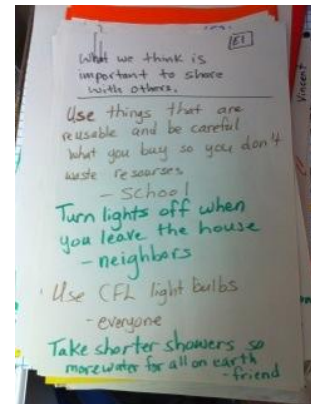 E1
What we think is
important to share
with others.
Use things that are
reusable and be careful
what you buy so you don't
waste resourses
- School
Turn lights off when
you leave the house
- neighbors
Use CFL light bulbs
- everyone
Take shorter showers so
more water for all on earth
- friend
Vincent